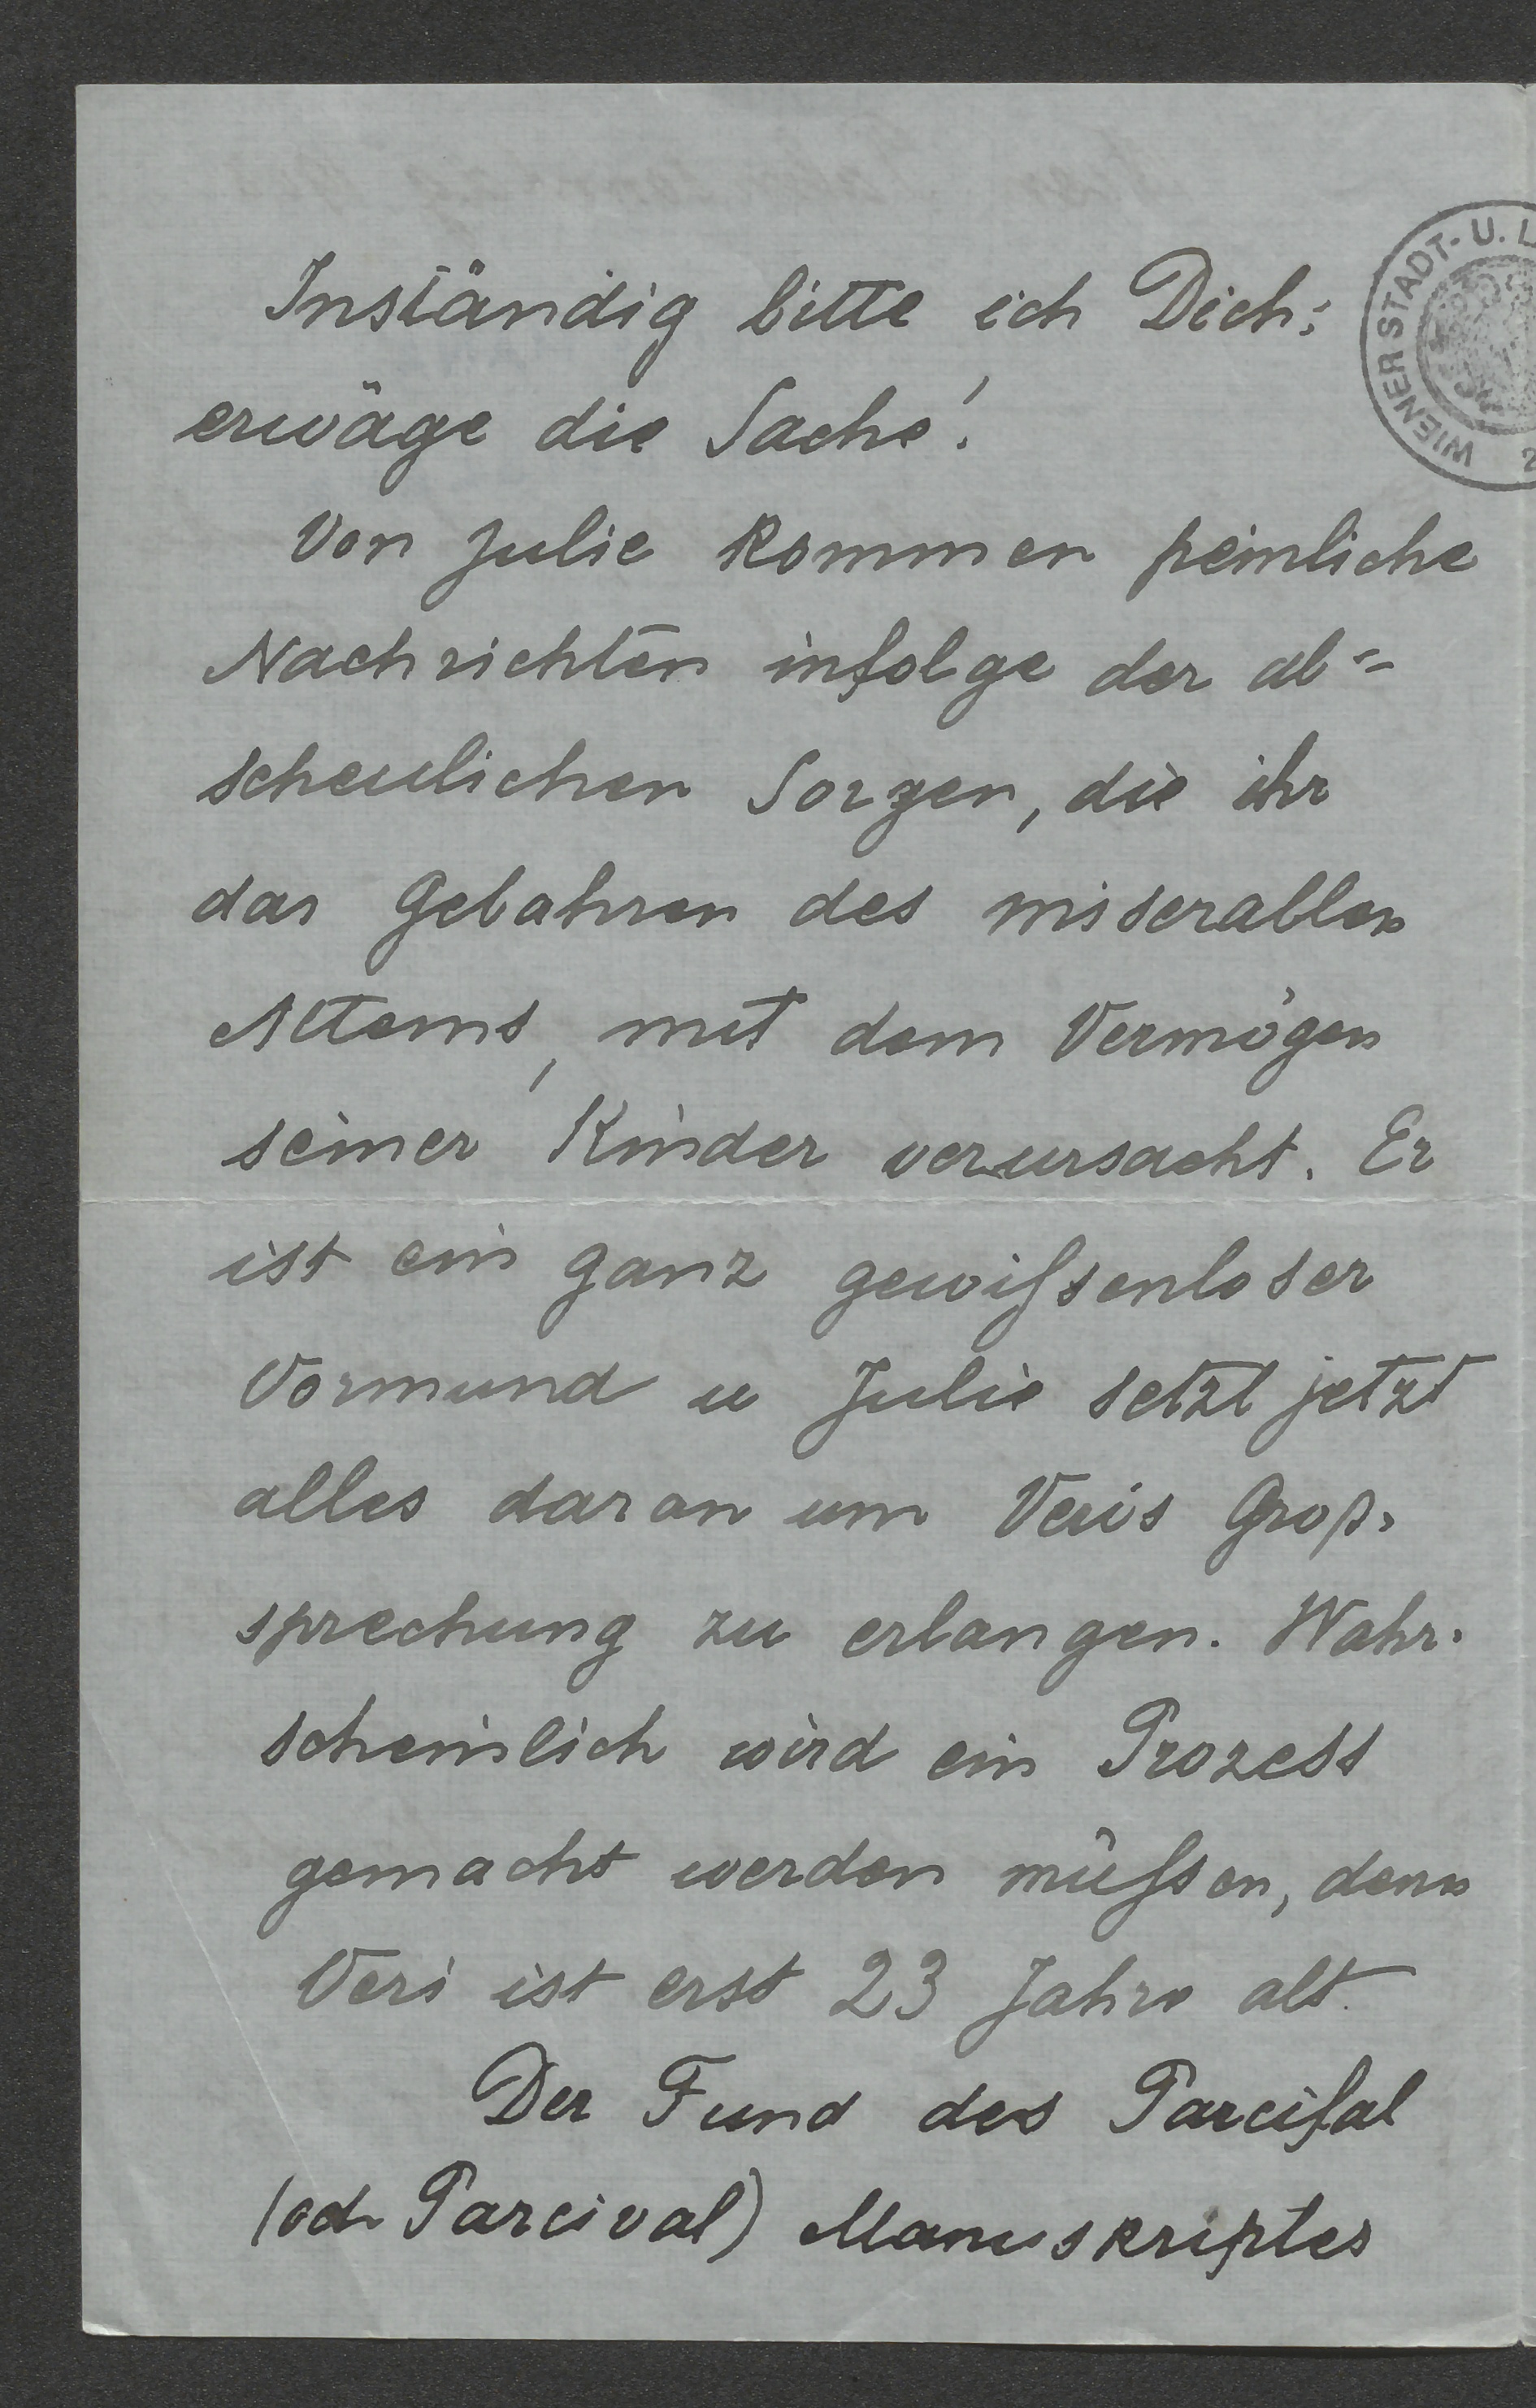 WIENER STADT- U. L
2
Inständig bitte ich Dich:
erwäge die Sache!
Von Julie kommen peinliche
Nachrichten infolge der ab=
scheulichen Sorgen, die ihr
das Gebahren des miserablen
Attems, mit dem Vermögen
seiner Kinder verursacht. Er
ist ein ganz gewißsenloser
Vormund u Julie setzt jetzt
alles daran um Veris Groß-
sprechung zu erlangen. Wahr-
scheinlich wird ein Prozess
gemacht werden müßsen, denn
Veri ist erst 23 Jahre alt.
Der Fund des Parcifal
(od. Parcival) Manuskriptes